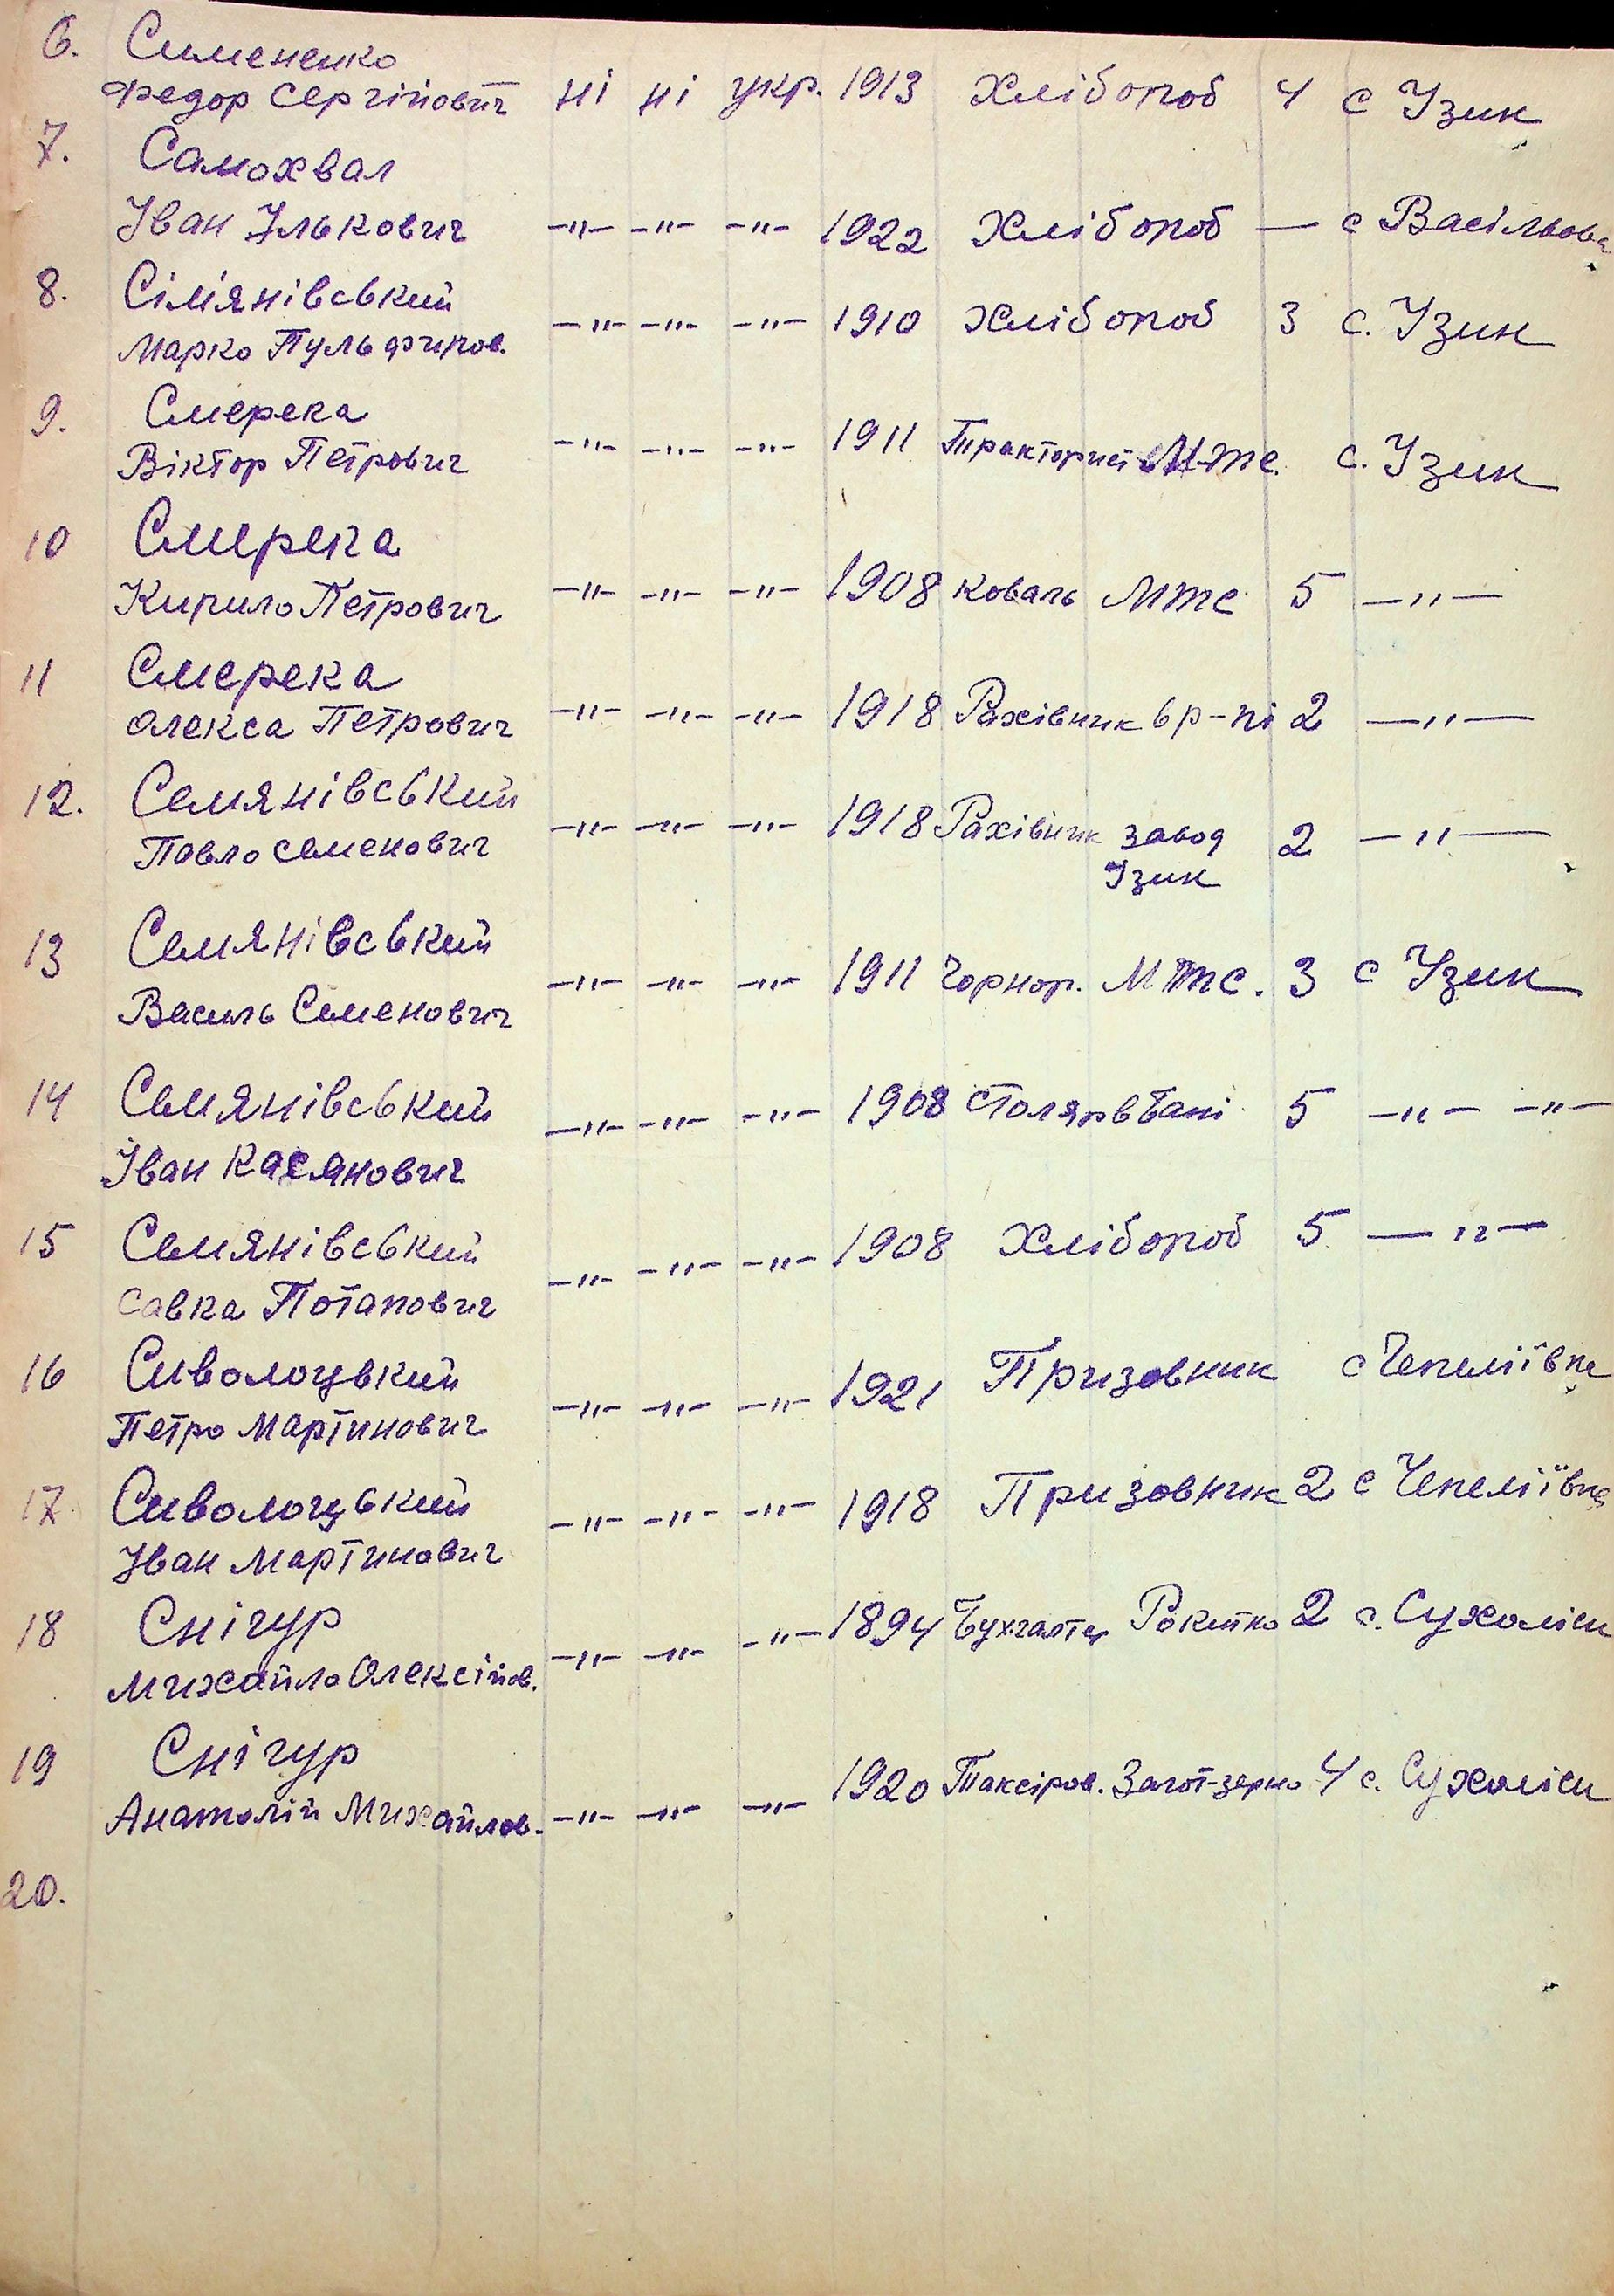 6. Симененко
Федор Сергійович ні ні укр. 1913 Хлібороб 4 с Узин
7. Самохвал
Іван Ількович —"— —"— —"— 1922 Хлібороб — с Васільова
8. Сім'янівський
Марко Пульфиров. —"— —"— —"— 1910 Хлібороб 3 с. Узин
9. Смерека
Віктор Петрович —"— —"— —"— 1911 Тракторист МТС. с. Узин
10 Смерека
Кирило Петрович —"— —"— —"— 1908 коваль МТС 5 —"—
11 Смерека
Олекса Петрович —"— —"— —"— 1918 Рахівник 2 —"—
12. Семянівський
Павло Семенович —"— —"— —"— 1918 Рахівник завод 2 —"—
Узин
13 Семянівський
Василь Семенович —"— —"— —"— 1911 Чорнор. МТС. 3 с Узин
14 Семянівський
Іван Касянович —"— —"— —"— 1908 столяр в бані 5 —"— —"—
15 Семянівський
Савка Потапович —"— —"— —"— 1908 Хлібороб 5 —"—
16 Сиволоцький
Петро Мартинович —"— —"— —"— 1921 Призовник с Чепеліївка
17. Сиволоцький
Іван Мартинович —"— —"— —"— 1918 Призовник 2 с Чепеліївка
18 Снігур
Михайло Олексійов. —"— —"— —"— 1894 Бухгалтер Рокитно 2 с. Сухоліси
19 Снігур
Анатолій Михайлов. —"— —"— —"— 1920 Таксіров. Загот-зерно 4 с. Сухоліси
20.